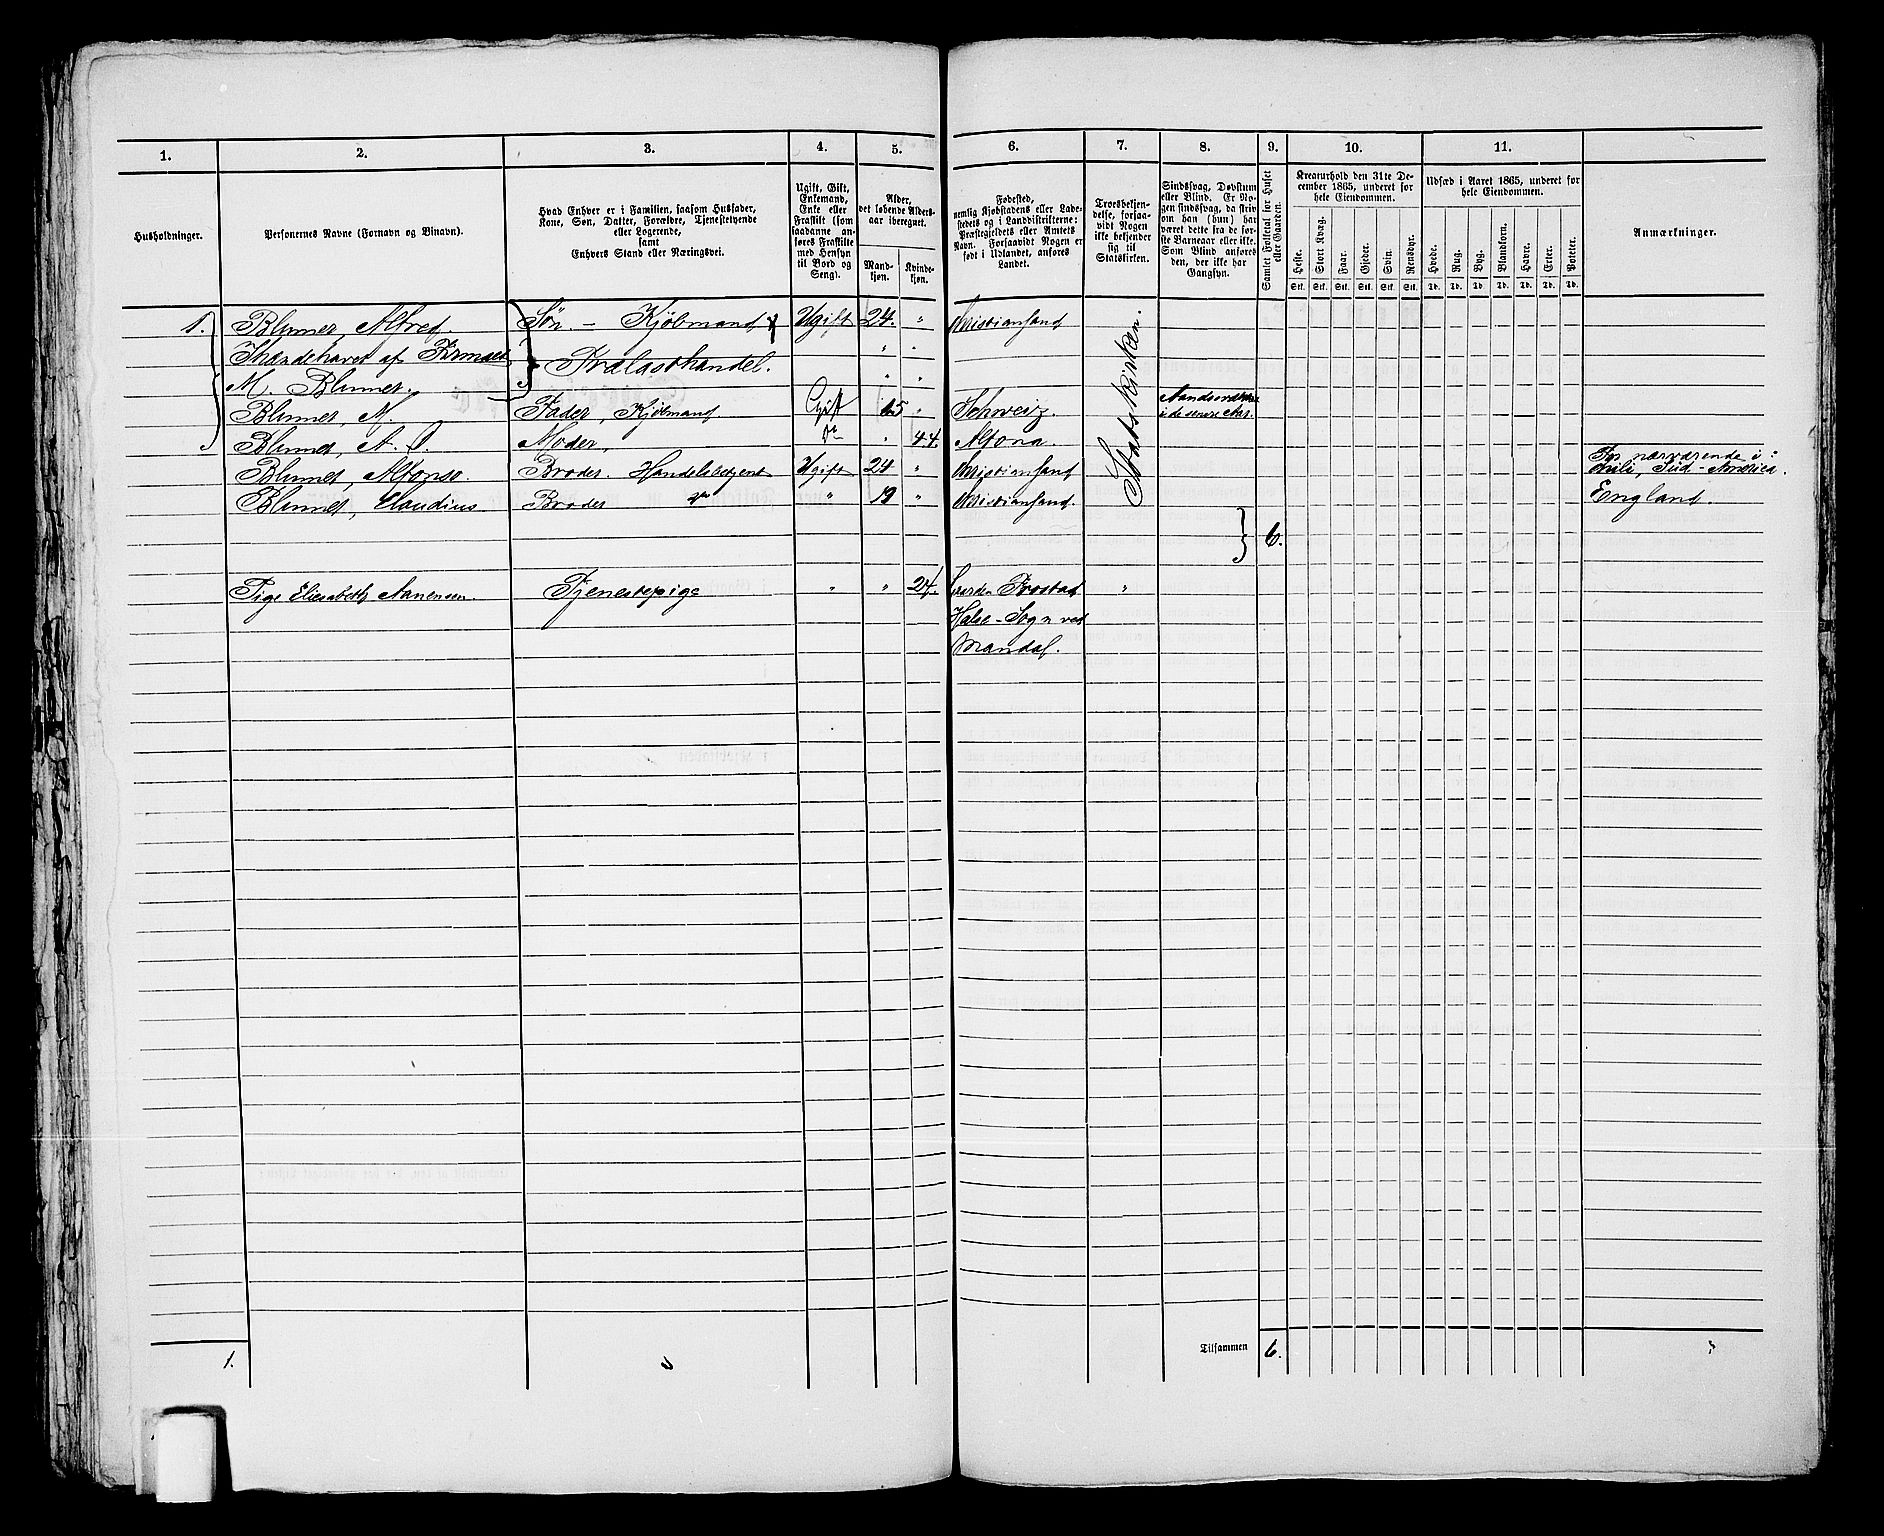 1. 2. 3. 4. 5. 6. 7. 8. 9. 10. 11.
Husholdninger.
Personernes Navne (Fornavn og Binavn).
Hvad Enhver er i Familien, saasom Husfader,
Kone, Søn, Datter, Forældre, Tjenestetyende
eller Logerende,
samt
Enhvers Stand eller Næringsvei.
Ugift, Gift,
Enkemand,
Enke eller
Fraskilt (som
saadanne an-
føres Fraskilte
med Hensyn
til Bord og
Seng).
Alder,
det løbende Alders-
aar iberegnet.
Mand-
kjøn.
Kvinde-
kjøn.
Fødested,
nemlig Kjøbstadens eller Lade-
stedets og i Landdistrikterne:
Præstegjeldets eller Amtets
Navn. Forsaavidt Nogen er
født i Udlandet, anføres
Landet.
Troesbekjen-
delse, forsaa-
vidt Nogen
ikke bekjender
sig til
Statskirken.
Sindssvag, Døvstum
eller Blind. Er No-
gen sindssvag, da skriv
om han (hun) har
været dette fra de før-
ste Barneaar eller ikke.
Som Blind anføres
den, der ikke har
Gangsyn.
Samlet Folketal for Huset
eller Gaarden.
Kreaturhold den 31te De-
cember 1865, underet for
hele Eiendommen.
Heste. Stort Kvæg. Faar. Gjeder. Svin. Rensdyr.
Stk. Stk. Stk. Stk. Stk. Stk.
Udsæd i Aaret 1865, underet for
hele Eiendommen.
Hvede. Rug. Byg. Blandkorn. Havre. Erter. Poteter.
Td. Td. Td. Td. Td. Td. Td.
Anmærkninger.
1. Blumer, Alfred. Søn. - Kjøbmand Ugift 24. " Christiansand Statskirken.
Ihændehaver af Firmaet " "
M. Blumer. Trælasthandel. " "
Blumer, M. Fader, Kjøbmand Gift "
Schweiz.
i de senere Aar.
Blumer, A. C. Moder, do " 44. Altona.
Blumer, Alfonso. Broder. Handelsbetjent Ugift 24 " Christiansand
For nærværende i:
Chili, Sud-America.
Blumer, Claudius Broder do " 19 " Christiansand.
England.
6.
Pige Eliesabeth Aanensen. Tjenestepige " " 24. Gaarden Frostad "
Halse-Sogn ved
Mandal.
1. Tilsammen 6.